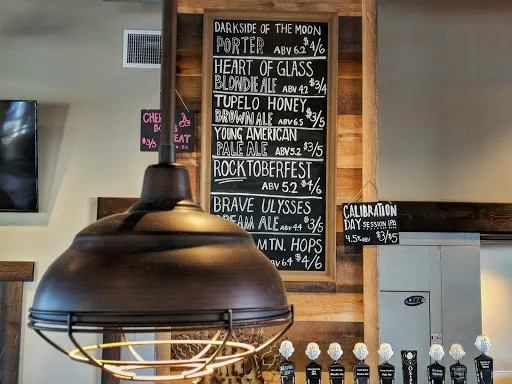 DARKSIDE OF THE MOON
PORTER ABV 6.2 $4/6
HEART OF GLASS
BLONDIE ALE ABV 4.2 $3/4
TUPELO HONEY
BROWN ALE ABV 6.5 $3/5
YOUNG AMERICAN
PALE ALE ABV 5.2 $3/5
ROCKTOBERFEST
ABV 5.2 $4/6
BRAVE ULYSSES
ALE ABV 4.4 $3/5
MTN. HOPS
6.4 $4/6
CALIBRATION
DAY SESSION IPA
4.5% ABV $3/$5